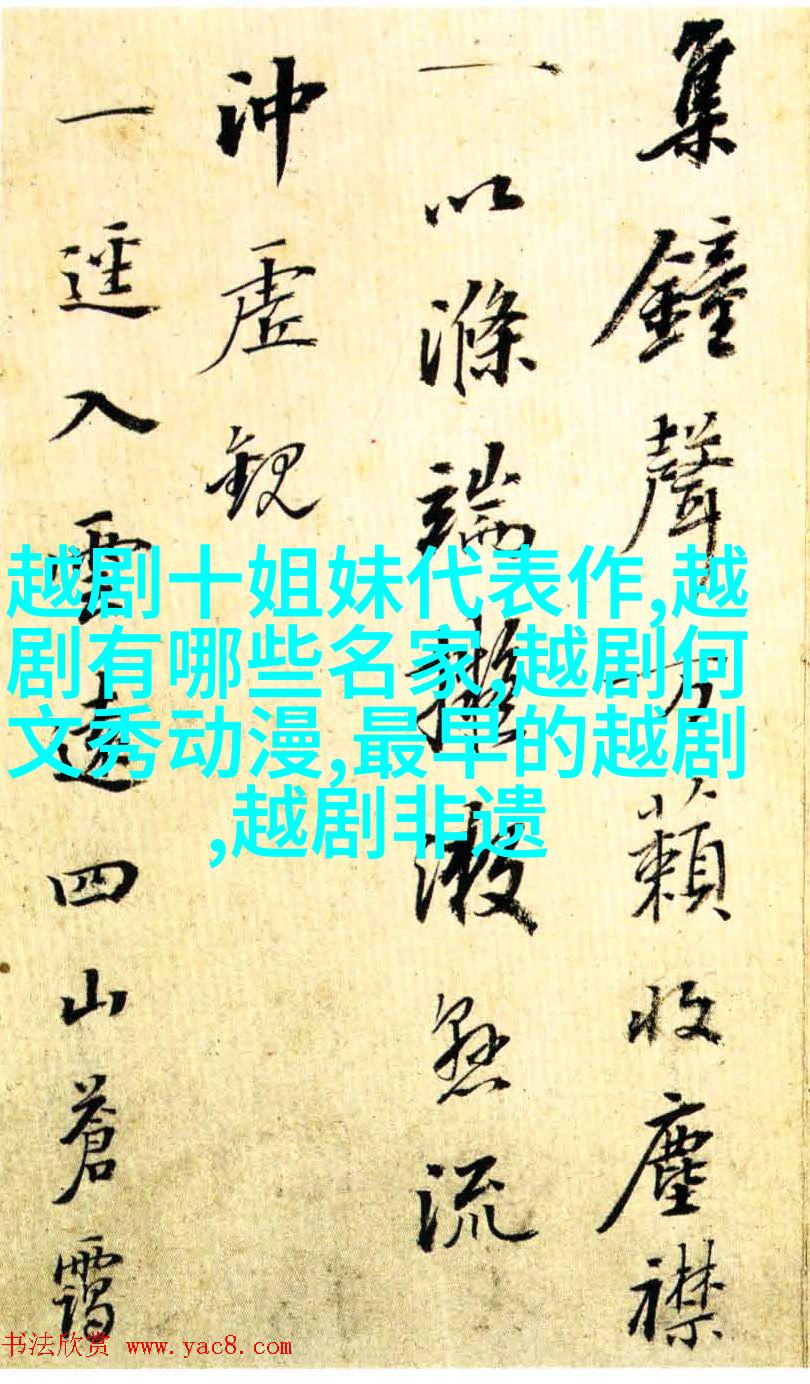 集鐘聲万籟收塵襟
一以滌端擬漱懸流
沖虛觀
一逕入雲遠四山蒼靄
越剧十姐妹代表作,越
剧有哪些名家,越剧何
文秀动漫,最早的越剧
,越剧非遗
书法欣赏 www.yac8.com